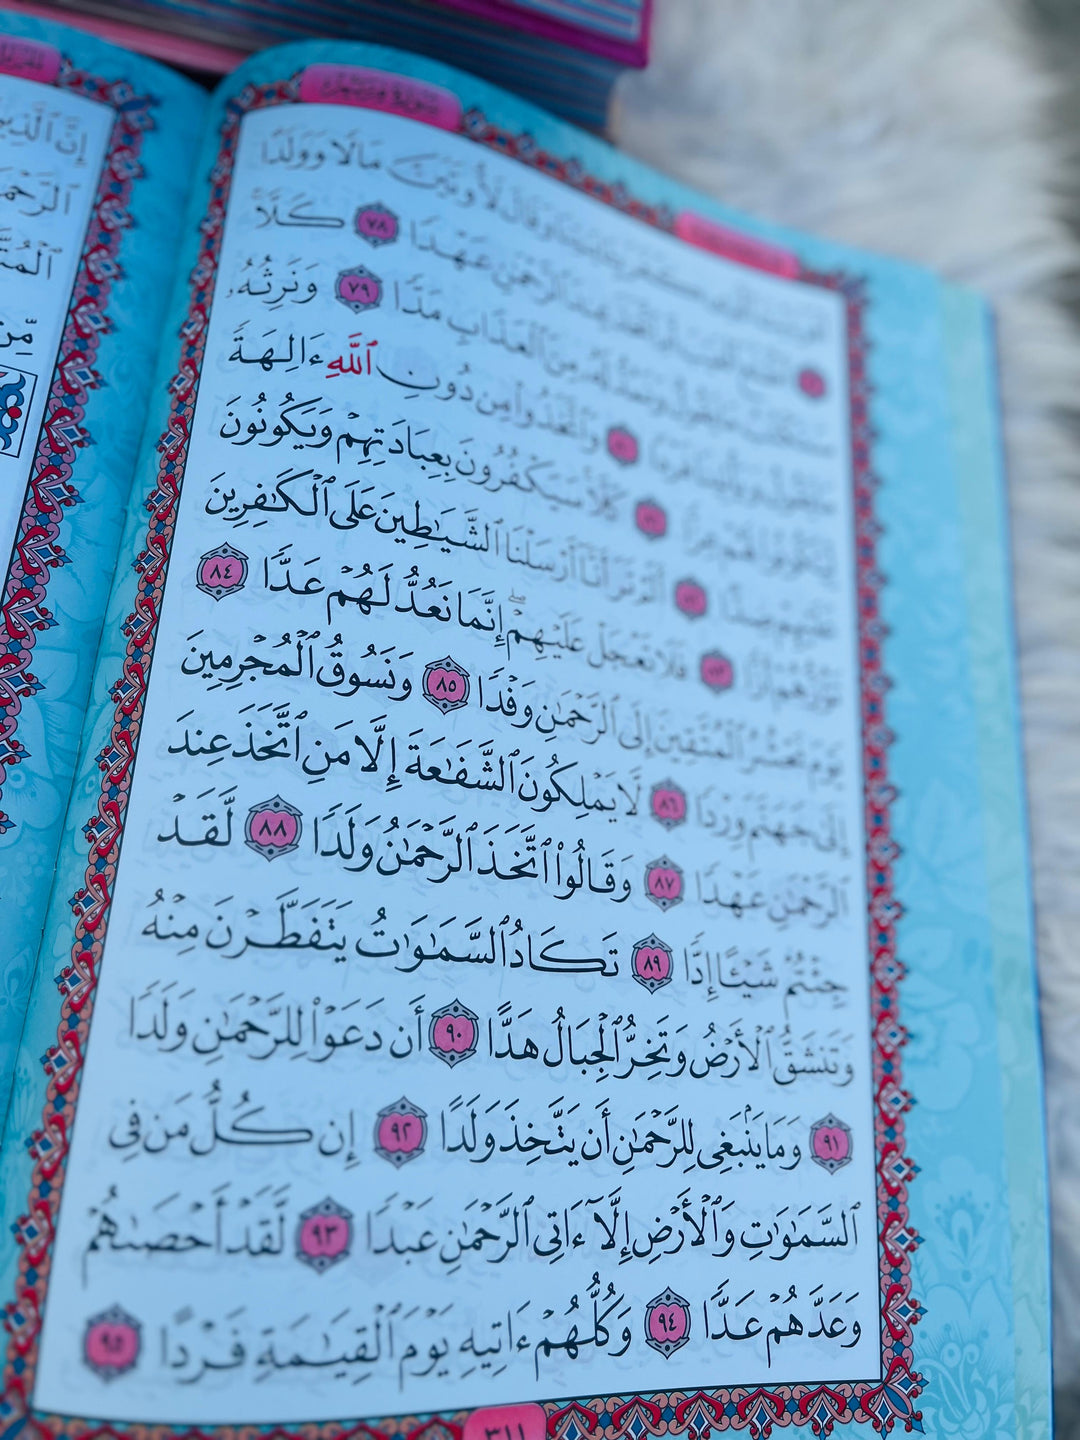 سُورَةُ مَرۡيَمَ
وَقَالَ لَأُوتَيَنَّ مَالٗا وَوَلَدًا
ٱلرَّحۡمَٰنِ عَهۡدٗا ٧٨ كَلَّاۚ
مِنَ ٱلۡعَذَابِ مَدّٗا ٧٩ وَنَرِثُهُۥ
وَٱتَّخَذُواْ مِن دُونِ ٱللَّهِ ءَالِهَةٗ
كَلَّاۚ سَيَكۡفُرُونَ بِعِبَادَتِهِمۡ وَيَكُونُونَ
أَلَمۡ تَرَ أَنَّآ أَرۡسَلۡنَا ٱلشَّيَٰطِينَ عَلَى ٱلۡكَٰفِرِينَ
فَلَا تَعۡجَلۡ عَلَيۡهِمۡۖ إِنَّمَا نَعُدُّ لَهُمۡ عَدّٗا ٨٤
يَوۡمَ نَحۡشُرُ ٱلۡمُتَّقِينَ إِلَى ٱلرَّحۡمَٰنِ وَفۡدٗا ٨٥ وَنَسُوقُ ٱلۡمُجۡرِمِينَ
إِلَىٰ جَهَنَّمَ وِرۡدٗا ٨٦ لَّا يَمۡلِكُونَ ٱلشَّفَٰعَةَ إِلَّا مَنِ ٱتَّخَذَ عِندَ
ٱلرَّحۡمَٰنِ عَهۡدٗا ٨٧ وَقَالُواْ ٱتَّخَذَ ٱلرَّحۡمَٰنُ وَلَدٗا ٨٨ لَّقَدۡ
جِئۡتُمۡ شَيۡـًٔا إِدّٗا ٨٩ تَكَادُ ٱلسَّمَٰوَٰتُ يَتَفَطَّرۡنَ مِنۡهُ
وَتَنشَقُّ ٱلۡأَرۡضُ وَتَخِرُّ ٱلۡجِبَالُ هَدًّا ٩٠ أَن دَعَوۡاْ لِلرَّحۡمَٰنِ وَلَدٗا
٩١ وَمَا يَنۢبَغِي لِلرَّحۡمَٰنِ أَن يَتَّخِذَ وَلَدًا ٩٢ إِن كُلُّ مَن فِي
ٱلسَّمَٰوَٰتِ وَٱلۡأَرۡضِ إِلَّآ ءَاتِي ٱلرَّحۡمَٰنِ عَبۡدٗا ٩٣ لَّقَدۡ أَحۡصَىٰهُمۡ
وَعَدَّهُمۡ عَدّٗا ٩٤ وَكُلُّهُمۡ ءَاتِيهِ يَوۡمَ ٱلۡقِيَٰمَةِ فَرۡدًا ٩٥
٣١١